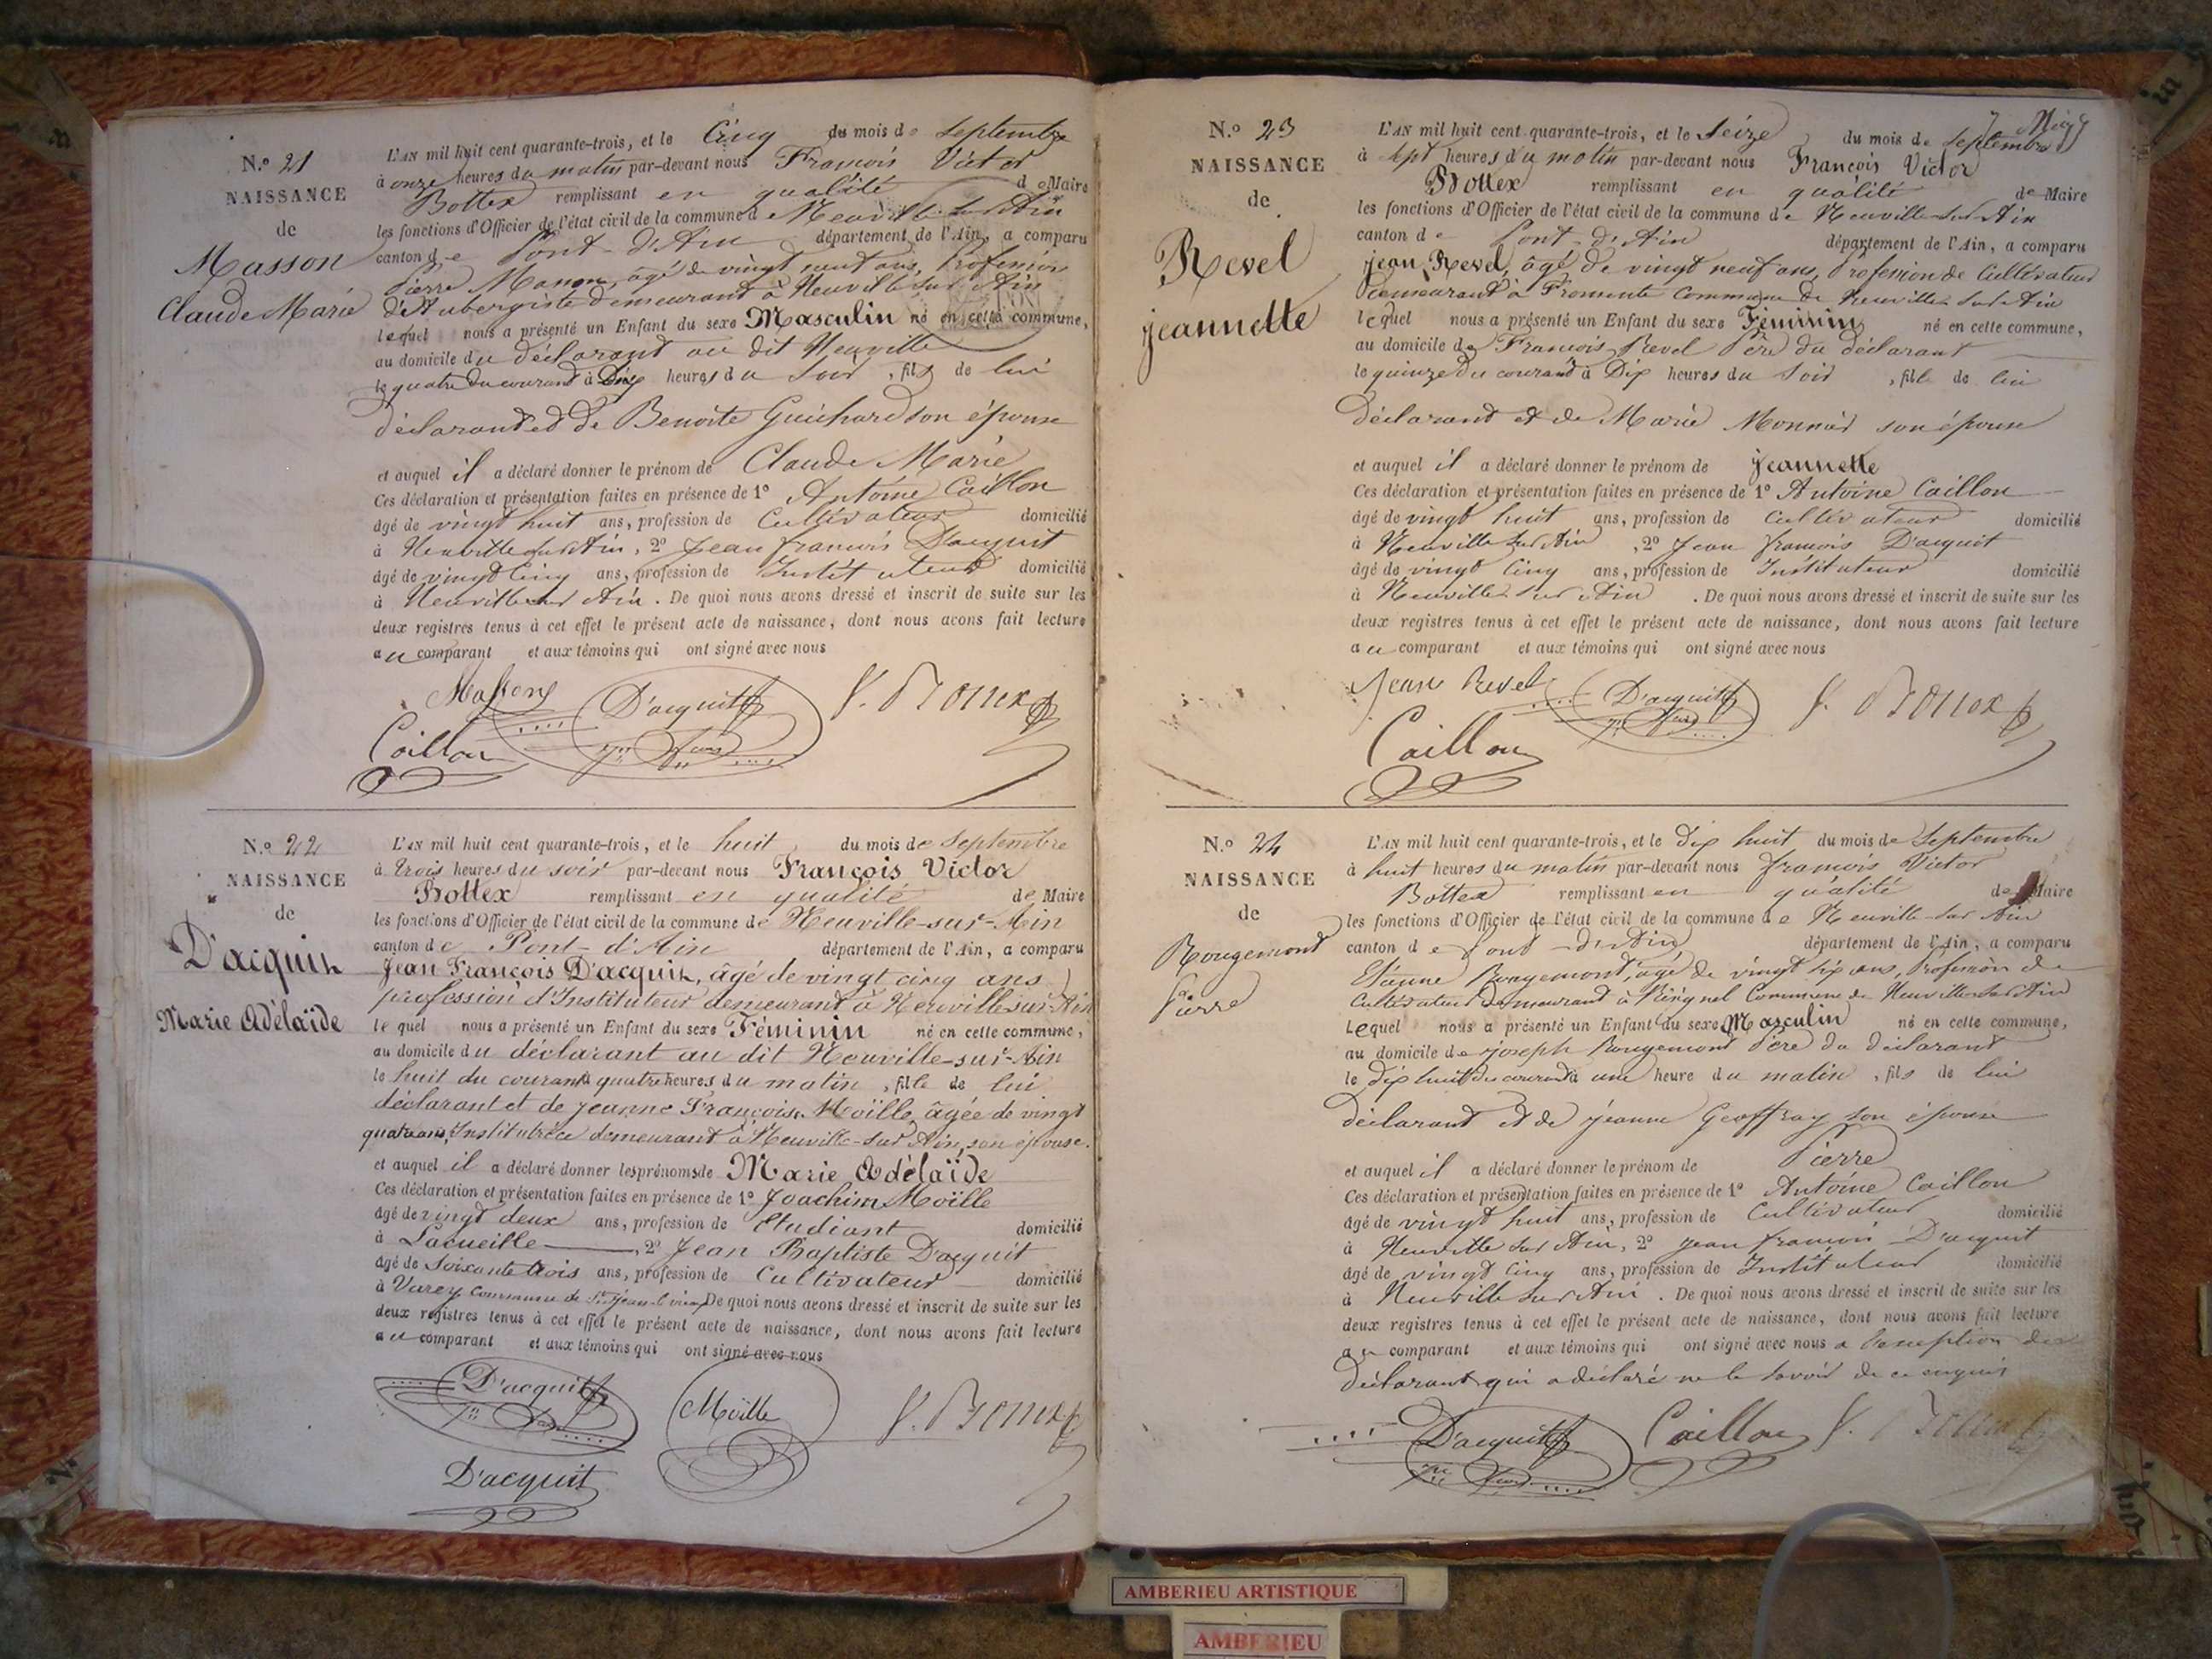 N.o 21
NAISSANCE
de
Masson
Claude Marie
L'AN mil huit cent quarante-trois, et le Cinq du mois de Septembre
à onze heures du matin par-devant nous François Victor
Bottex remplissant en qualité de Maire
les fonctions d'Officier de l'état civil de la commune de Neuville-sur-Ain
canton de Pont-d'Ain département de l'Ain, a comparu
Pierre Masson, âgé de vingt neuf ans, Profession
d'Aubergiste demeurant à Neuville sur Ain
lequel nous a présenté un Enfant du sexe Masculin né en cette commune,
au domicile du déclarant au dit Neuville
le quatre du courant à Dix heures du Soir, fils de lui
déclarant et de Benoite Guichard son épouse
et auquel il a déclaré donner le prénom de Claude Marie
Ces déclaration et présentation faites en présence de 1º Antoine Caillon
âgé de vingt huit ans, profession de Cultivateur domicilié
à Neuville sur Ain, 2º Jean françois Dacquit
âgé de vingt Cinq ans, profession de Instituteur domicilié
à Neuville sur Ain. De quoi nous avons dressé et inscrit de suite sur les
deux registres tenus à cet effet le présent acte de naissance, dont nous avons fait lecture
au comparant et aux témoins qui ont signé avec nous
Masson D'acquit V. Bottex
Caillon
N.o 22
NAISSANCE
de
D'acquit
Marie Adélaïde
L'AN mil huit cent quarante-trois, et le huit du mois de Septembre
à trois heures du soir par-devant nous François Victor
Bottex remplissant en qualité de Maire
les fonctions d'Officier de l'état civil de la commune de Neuville-sur-Ain
canton de Pont-d'Ain département de l'Ain, a comparu
Jean François D'acquit, âgé de vingt cinq ans
profession d'Instituteur demeurant à Neuville-sur-Ain
lequel nous a présenté un Enfant du sexe Féminin né en cette commune,
au domicile du déclarant au dit Neuville-sur-Ain
le huit du courant à quatre heures du matin, fille de lui
déclarant et de jeanne Françoise Moïlle, âgée de vingt
quatre ans, Institutrice demeurant à Neuville-sur Ain, son épouse.
et auquel il a déclaré donner les prénoms de Marie Adélaïde
Ces déclaration et présentation faites en présence de 1º Joachim Moïlle
âgé de vingt deux ans, profession de Etudiant domicilié
à Lacueille, 2º Jean Baptiste D'acquit
âgé de Soixante trois ans, profession de Cultivateur domicilié
à Varey Commune de St. Jean-le vieux De quoi nous avons dressé et inscrit de suite sur les
deux registres tenus à cet effet le présent acte de naissance, dont nous avons fait lecture
au comparant et aux témoins qui ont signé avec nous
D'acquit Moille V. Bottex
D'acquit
N.o 23
NAISSANCE
de
Revel
jeannette
L'AN mil huit cent quarante-trois, et le Seize du mois de Septembre
à Sept heures du matin par-devant nous François Victor
Bottex remplissant en qualité de Maire
les fonctions d'Officier de l'état civil de la commune de Neuville-sur Ain
canton de Pont-d'Ain département de l'Ain, a comparu
jean Revel, âgé de vingt neuf ans, Profession de Cultivateur
demeurant à Fromente Commune de Neuville sur Ain
lequel nous a présenté un Enfant du sexe Féminin né en cette commune,
au domicile de François Revel Père du déclarant
le quinze du courant à Dix heures du Soir, fille de lui
déclarant et de Marie Monnier son épouse
et auquel il a déclaré donner le prénom de jeannette
Ces déclaration et présentation faites en présence de 1º Antoine Caillon
âgé de vingt huit ans, profession de Cultivateur domicilié
à Neuville sur Ain, 2º Jean françois D'acquit
âgé de vingt Cinq ans, profession de Instituteur domicilié
à Neuville sur Ain. De quoi nous avons dressé et inscrit de suite sur les
deux registres tenus à cet effet le présent acte de naissance, dont nous avons fait lecture
au comparant et aux témoins qui ont signé avec nous
Jean Revel D'acquit V. Bottex
Caillon
N.o 24
NAISSANCE
de
Rougemont
Pierre
L'AN mil huit cent quarante-trois, et le Dix huit du mois de Septembre
à huit heures du matin par-devant nous françois Victor
Bottex remplissant en qualité de Maire
les fonctions d'Officier de l'état civil de la commune de Neuville-sur Ain
canton de Pont-d'Ain département de l'Ain, a comparu
Etienne Rougemont, âgé de vingt six ans, Profession de
Cultivateur demeurant à Commune de Neuville sur Ain
Lequel nous a présenté un Enfant du sexe Masculin né en cette commune,
au domicile de joseph Rougemont Père du déclarant
le Dix huit du courant à une heure du matin, fils de lui
déclarant et de jeanne Geoffray son épouse
et auquel il a déclaré donner le prénom de Pierre
Ces déclaration et présentation faites en présence de 1º Antoine Caillon
âgé de vingt huit ans, profession de Cultivateur domicilié
à Neuville sur Ain, 2º jean françois D'acquit
âgé de vingt Cinq ans, profession de Instituteur domicilié
à Neuville sur Ain. De quoi nous avons dressé et inscrit de suite sur les
deux registres tenus à cet effet le présent acte de naissance, dont nous avons fait lecture
au comparant et aux témoins qui ont signé avec nous a l'exception du
déclarant qui a déclaré ne le savoir de ce enquis
D'acquit Caillon V. Bottex
AMBERIEU ARTISTIQUE
AMBERIEU